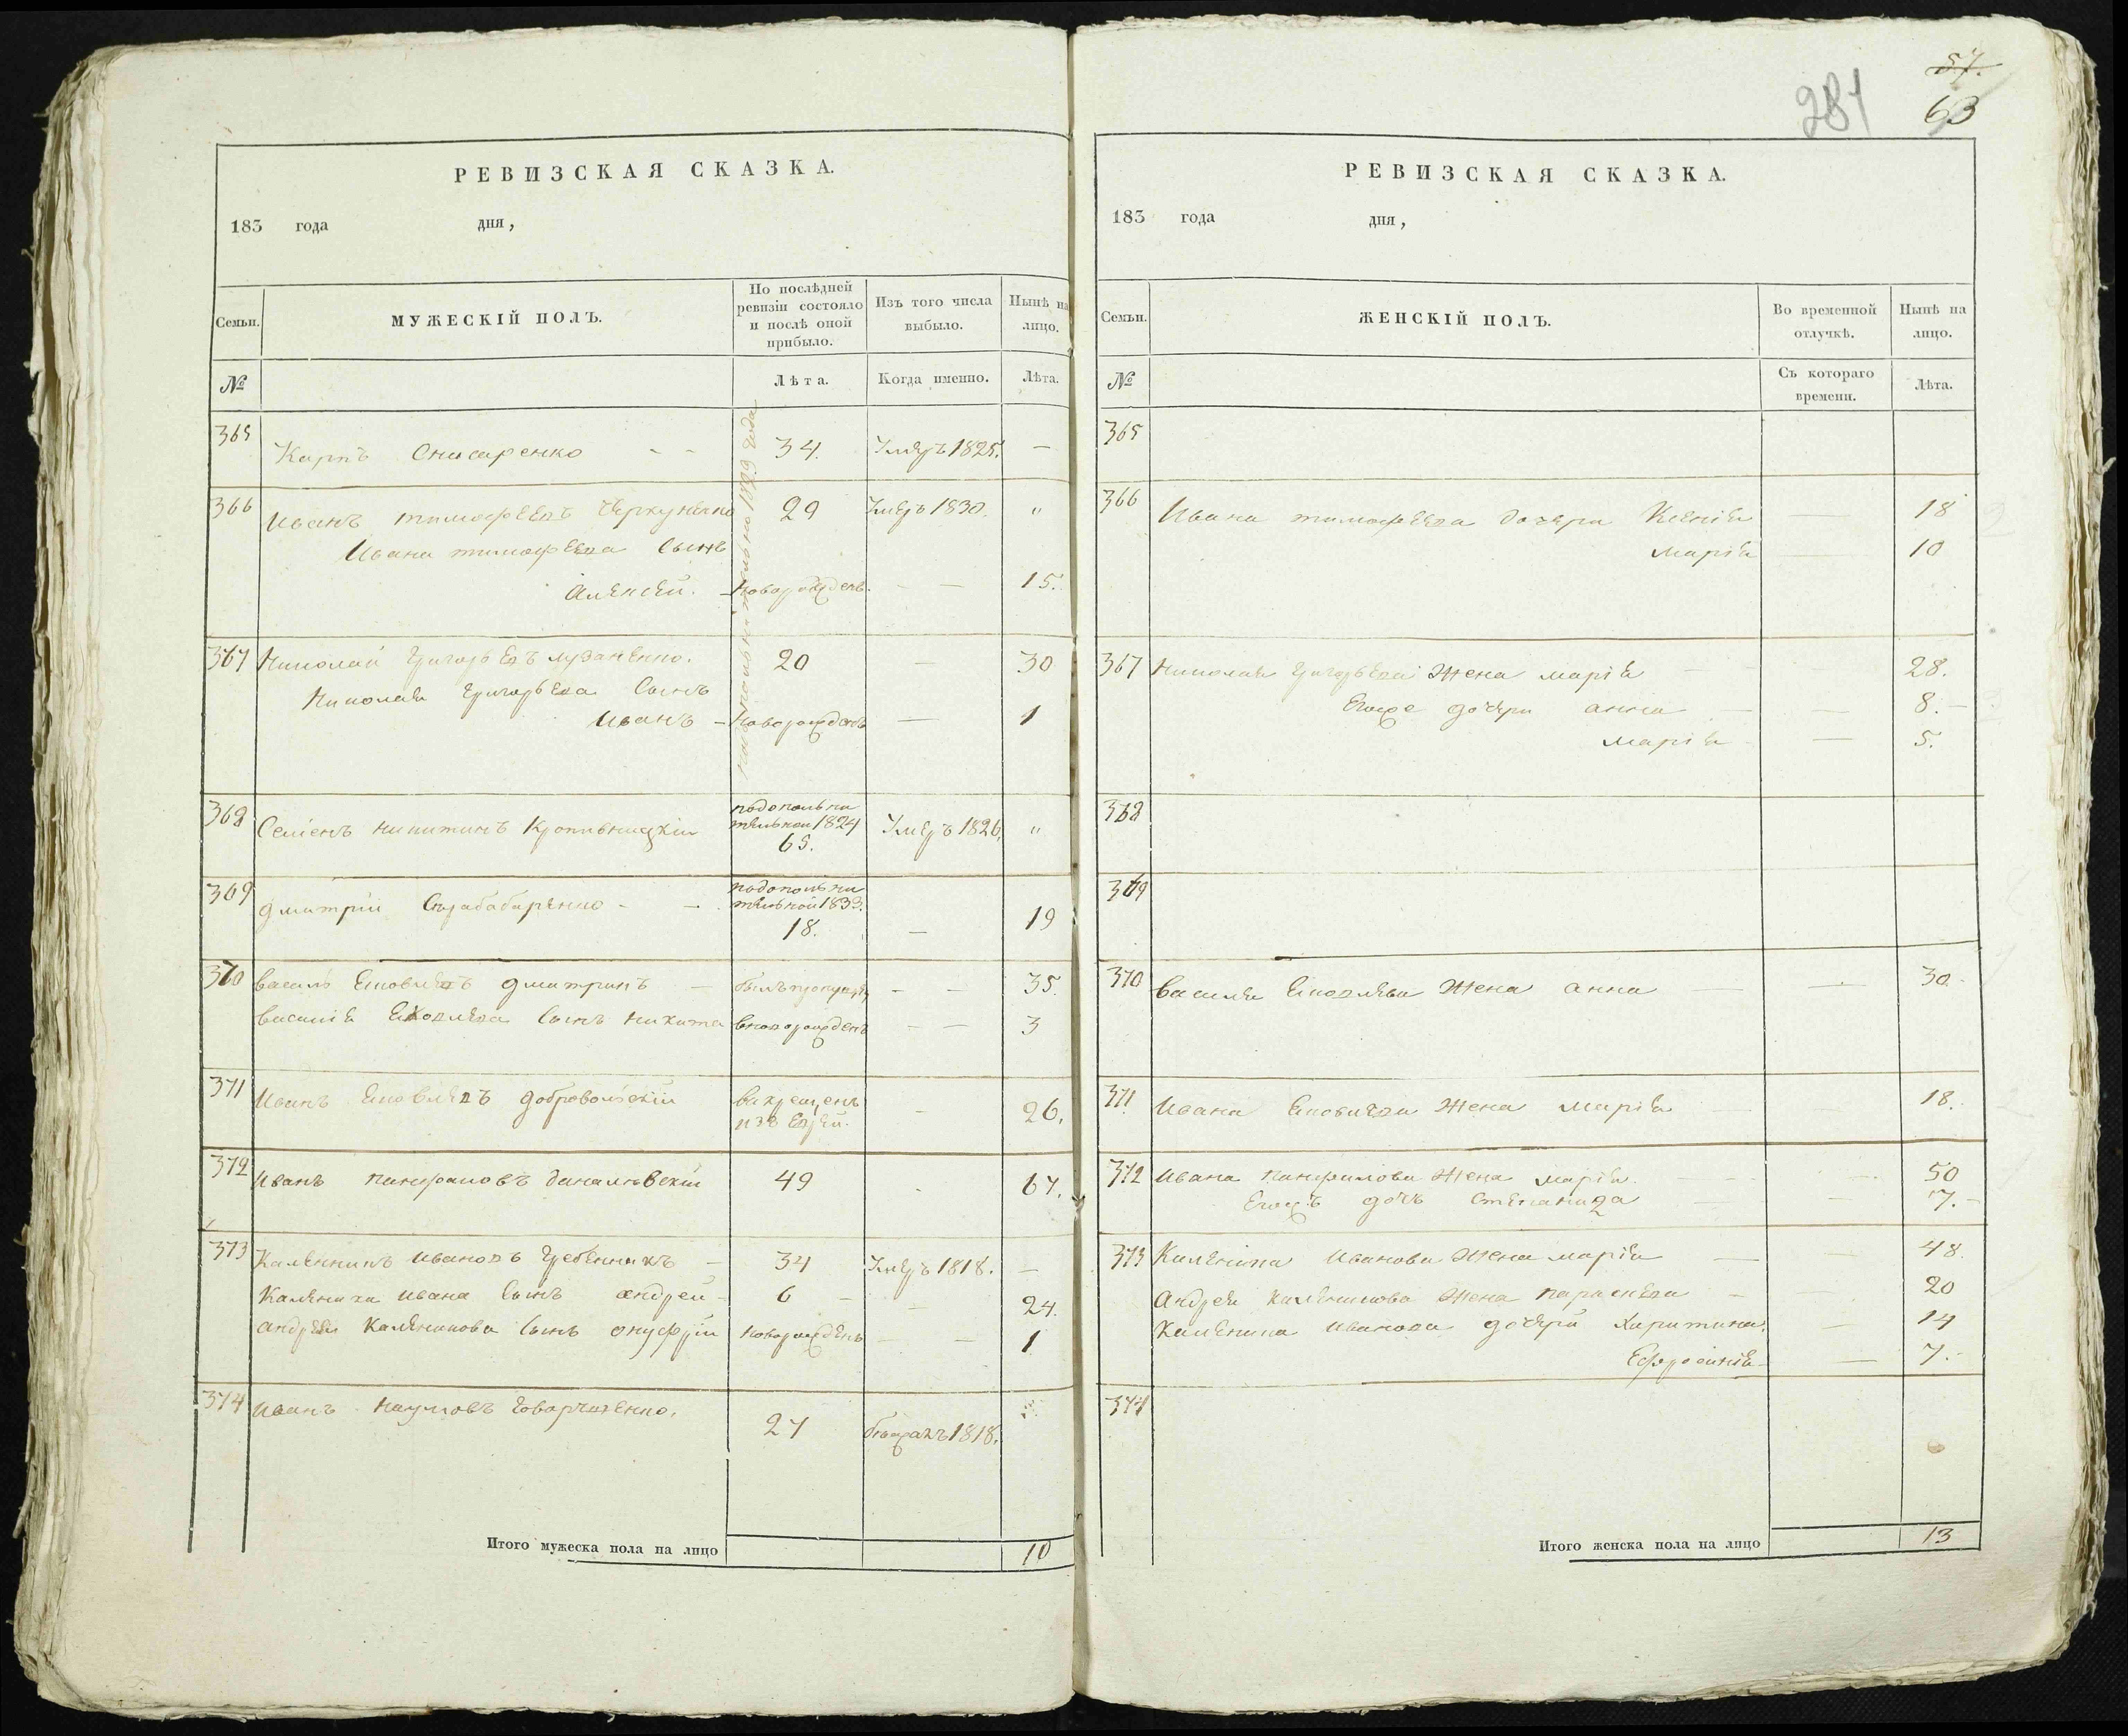 РЕВИЗСКАЯ СКАЗКА.
183 года дня,
Семьи. МУЖЕСКІЙ ПОЛЪ. По послѣдней ревизіи состояло и послѣ оной прибыло. Изъ того числа выбыло. Нынѣ на лицо.
№ Лѣта. Когда именно. Лѣта.
365 Карпъ Снисаренко 34. Умеръ 1825. —
366 Иванъ тимофеевъ 29 Умеръ 1830. "
Ивана тимофеева Сынъ
Алексей. — Новорожденъ. — — 15.
367 Николай Григорьевъ лузаненко. 20 — 30
Николая Григорьева Сынъ
Иванъ — Новорожденъ — 1
368 Семенъ никитинъ Кропивницкій подополни
тельной 1824 Умеръ 1826. "
65.
369 дмитрій подополни
тельной 1833.
18. — 19
370 василь Яковлевъ дмитринъ — былъ — — 35.
василія Яковлева Сынъ никита вноворожденъ — — 3
371 Иванъ Яковлевъ добровольскій выкрещенъ
изъ Еврей. — 26.
372 Иванъ панфиловъ 49 67.
373 Каленикъ Ивановъ Гребенникъ — 34 Умеръ 1818. —
Каленика Ивана Сынъ андрей — 6 — — 24.
андрея Каленикова Сынъ онуфрій новорожденъ — — 1
374 Иванъ Наумовъ 27 1818.
Итого мужеска пола на лицо 10
57.
281 63
РЕВИЗСКАЯ СКАЗКА.
183 года дня,
Семьи. ЖЕНСКІЙ ПОЛЪ. Во временной отлучкѣ. Нынѣ на лицо.
№ Съ котораго времени. Лѣта.
365
366 Ивана тимофеева дочери Ксенія — 18
марія — 10
367 Николая Григорьева Жена марія — 28.
Егоже дочери анна — — 8. —
марія — 5.
368
369
370 василя Яковлева Жена анна — — 30.
371 Ивана Яковлева Жена марія — 18.
372 Ивана панфилова Жена марія. — 50
Егожъ дочь Степанида — 7. —
373 Каленика Иванова Жена марія — 48.
андрея Каленикова Жена параскева — 20
Каленика Иванова дочери Харитина. — 14
Ефросинія — 7. —
374
Итого женска пола на лицо 13